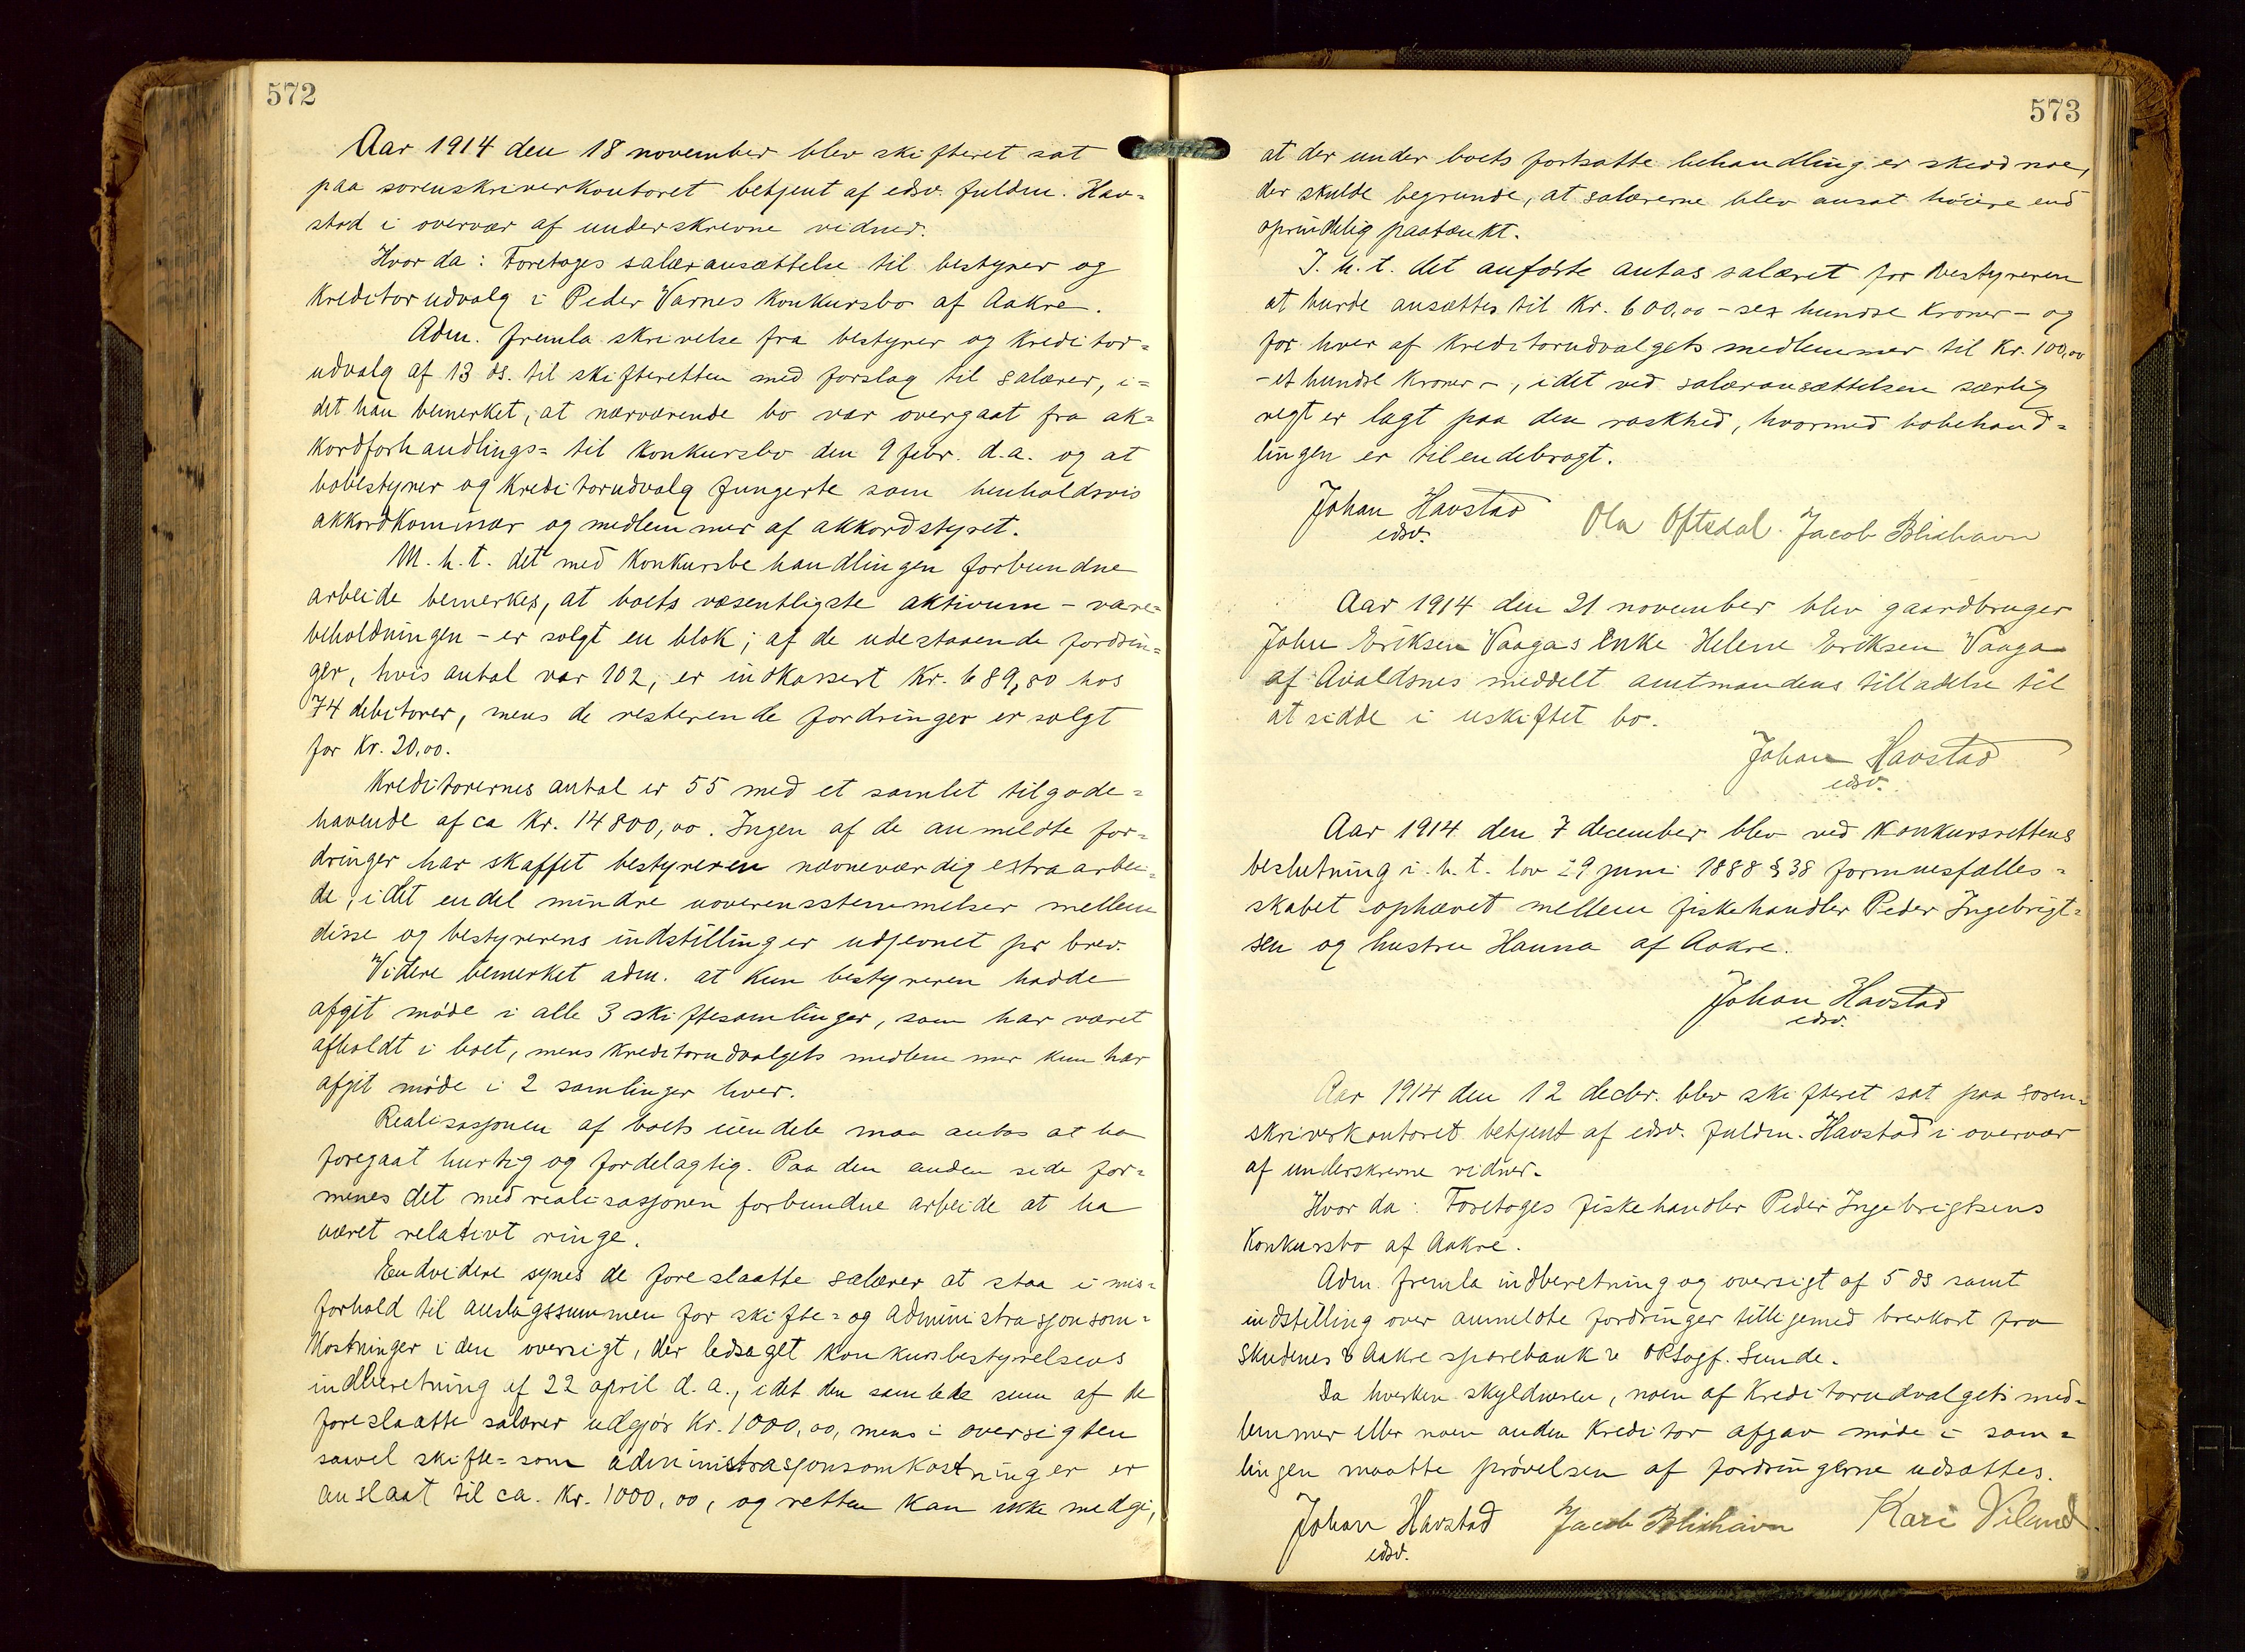 572
Aar 1914 den 18 november blev skifteret sat
paa sorenskriverkontoret betjent af edsv. fuldm. Hav=
stad i overvær af underskrevne vidner.
Hvor da: Foretoges salæransættelse til bestyrer og
kreditorudvalg i Peder Varnes konkursbo af Aakre.
Adm. fremla skrivelse fra bestyrer og kreditor=
udvalg af 13 ds. til skifteretten med forslag til salærer, i=
det han bemerket, at nærværende bo var overgaat fra ak=
kordforhandlings= til konkursbo den 9 febr. d.a. og at
bobestyrer og kreditorudvalg fungerte som henholdsvis
akkordkommisær og medlemmer af akkordstyret.
M.h.t. det med konkursbehandlingen forbundne
arbeide bemerkes, at boets væsentligste aktivum - vare=
beholdningen - er solgt en blok; af de udestaaende fordrin=
ger, hvis antal var 102, er indkassert Kr. 689,80 hos
74 debitorer, mens de resterende fordringer er solgt
for Kr. 20,00.
Kreditorernes antal er 55 med et samlet tilgode=
havende af ca Kr. 14800,00. Ingen af de anmeldte for=
dringer har skaffet bestyreren nævneværdig extra arbei=
de, idet endel mindre uoverensstemmelser mellem
disse og bestyrerens indstillinger udjevnet pr brev.
Videre bemerket adm. at kun bestyreren hadde
afgit møde i alle 3 skiftesamlinger, som har været
afholdt i boet, mens kreditorudvalgets medlemmer kun har
afgit møde i 2 samlinger hver.
Realisasjonen af boets eiendele maa antas at ha
foregaat hurtig og fordelagtig. Paa den anden side for=
menes det med realisasjonen forbundne arbeide at ha
været relativt ringe.
Endvidere synes de foreslaatte salærer at staa i mis=
forhold til anslagssummen for skifte= og administrasjonsom=
kostninger i den oversigt, der ledsaget konkursbestyrelsens
indberetning af 22 april d.a., idet den samlede sum af de
foreslaatte salærer udgjør Kr. 1000,00, mens i oversigten
saavel skifte= som administrasjonsomkostninger er
anslaat til ca. Kr. 1000,00, og retten kan ikke medgi,
573
at der under boets fortsatte behandling er skedd noe,
der skulde begrunde, at salærerne blev ansat høiere end
oprindelig paatænkt.
I.h.t. det anførte antas salæret for bestyreren
at burde ansættes til Kr. 600,00 - sex hundre kroner - og
for hver af kreditorudvalgets medlemmer til Kr. 100,00
- et hundre kroner -, idet ved salæransættelsen særlig
vegt er lagt paa den raskhed, hvormed bobehand=
lingen er tilendebragt.
Johan Havstad
edsv.
Ola Oftedal. Jacob Blixhavn
Aar 1914 den 21 november blev gaardbruger
John Eriksen Vaagas Enke Helene Eriksen Vaaga
af Avaldsnes meddelt amtmandens tilladelse til
at sidde i uskiftet bo.
Johan Havstad
edsv.
Aar 1914 den 7 december blev ved konkursrettens
beslutning i.h.t. lov 29 juni 1888 § 38 formuesfælles=
skabet ophævet mellem fiskehandler Peder Ingebrigt=
sen og hustru Hanna af Aakre.
Johan Havstad
edsv.
Aar 1914 den 12 decbr. blev skifteret sat paa soren=
skriverkontoret betjent af edsv. fuldm. Havstad i overvær
af underskrevne vidner.
Hvor da: Foretoges fiskehandler Peder Ingebrigtsens
konkursbo af Aakre.
Adm. fremla indberetning og oversigt af 5 ds samt
indstilling over anmeldte fordringer tilligemed brevkort fra
Skudenes & Aakre sparebank v ORSagf. Sunde.
Da hverken skyldneren, noen af kreditorudvalgets med=
lemmer eller noen anden kreditor afgav møde i sam=
lingen maatte prøvelsen af fordringerne udsættes.
Johan Havstad
edsv.
Jacob Blixhavn
Kari